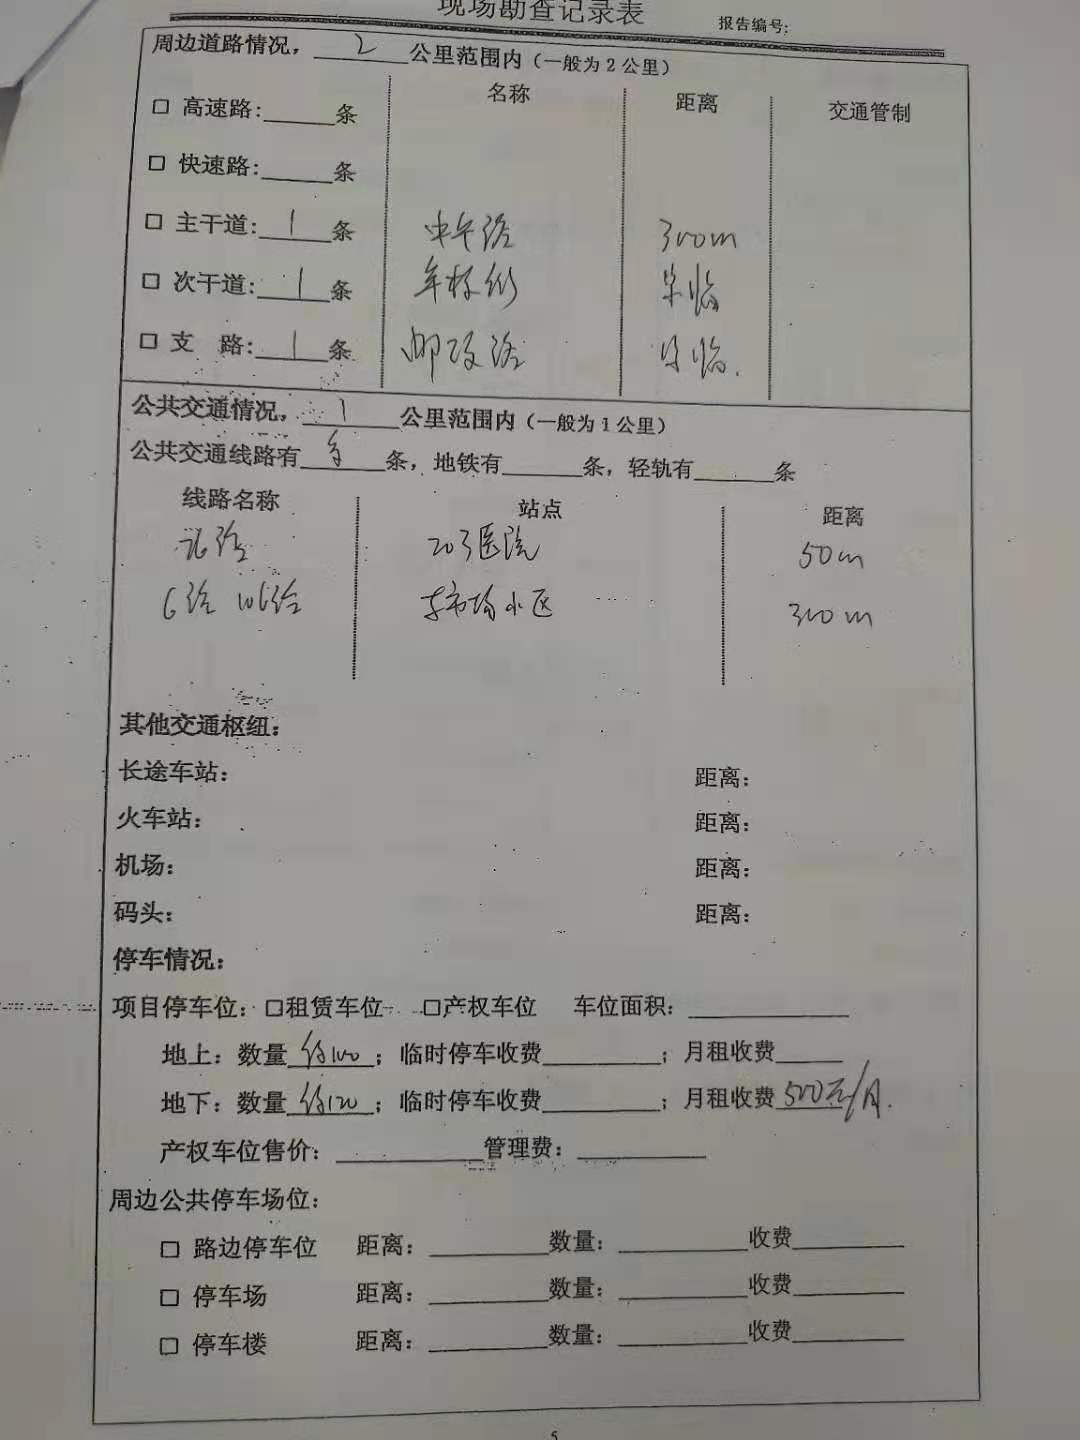 现场勘查记录表
报告编号:
周边道路情况，2公里范围内（一般为2公里）
名称 距离 交通管制
□ 高速路:______条
□ 快速路:______条
□ 主干道:1条 300m
□ 次干道:1条
□ 支 路:1条 邮政路
公共交通情况，1公里范围内（一般为1公里）
公共交通线路有______条，地铁有______条，轻轨有______条
线路名称 站点 距离
203医院 50m
6路 106路 市场小区 300m
其他交通枢纽:
长途车站: 距离:
火车站: 距离:
机场: 距离:
码头: 距离:
停车情况:
项目停车位: □租赁车位 □产权车位 车位面积:____________
地上: 数量约100; 临时停车收费________; 月租收费_____
地下: 数量约120; 临时停车收费________; 月租收费500元/月.
产权车位售价: __________管理费: __________
周边公共停车场位:
□ 路边停车位 距离: ________数量: ________收费________
□ 停车场 距离: ________数量: ________收费________
□ 停车楼 距离: ________数量: ________收费________
5